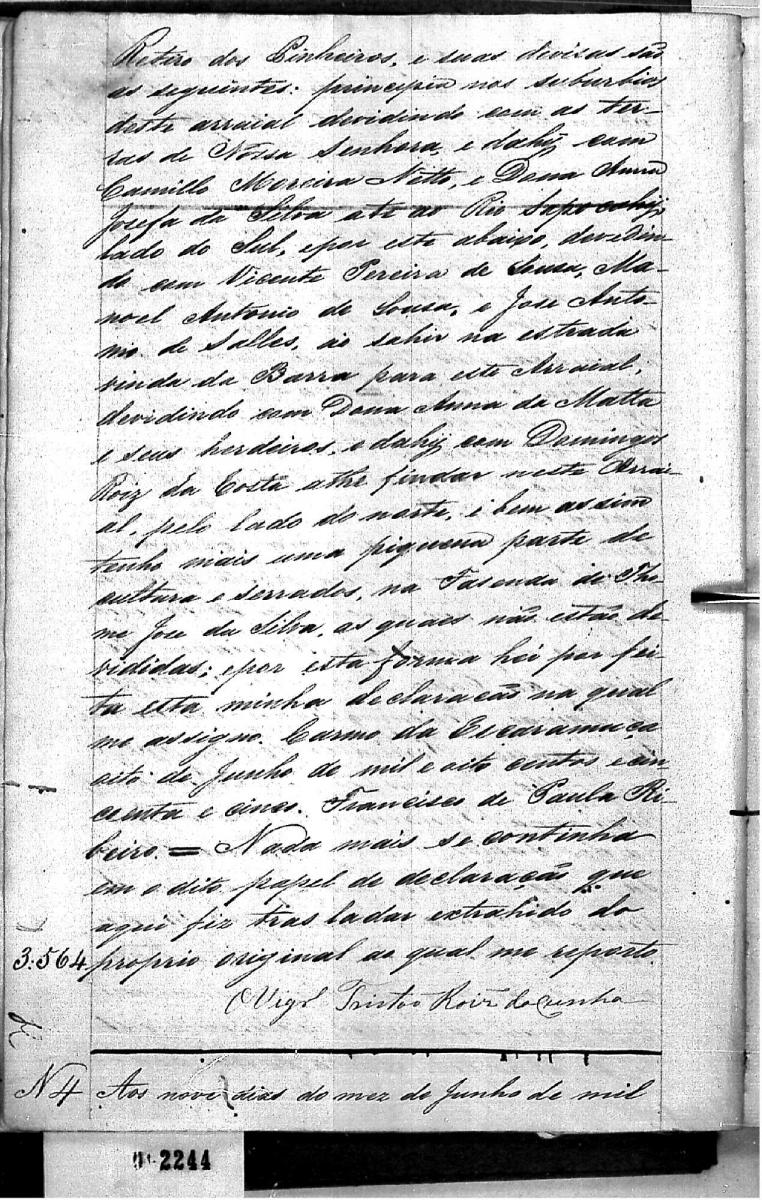 Retiro dos Pinheiros, e suas devisas são
as seguintes: principia nos suburbios
deste arraial devidindo com as ter-
ras de Nossa Senhora, e dahy com
Camillo Moreira Netto, e Dona Anna
Josefa da Silva até ao Rio Sapocahy,
lado do Sul, epor este abaixo, devedin-
do com Vicente Pereira de Sousa, Ma-
noel Antonio de Sousa, e Jose Anto-
nio de Salles, ao sahir na estrada
vinda da Barra para este Arraial,
devidindo com Dona Anna da Matta
e seus herdeiros, e dahy com Domingos
Roiz da Costa athe findar neste Arrai-
al, pelo lado do norte, e bem assim
tenho mais uma piquena parte de
cultura e serrados, na Fasenda de Tho-
me Jose da Silva, as quaes não estão de-
vididas; epor esta forma hei por fei-
ta esta minha declaração na qual
me assigno. Carmo da Escaramuça
oito de Junho de mil e oito centos e cin
coenta e cinco. Francisco de Paula Ri-
beiro. = Nada mais se continha
em o dito papel de declaração que
aqui fiz tras ladar extrahido do
3:564 proprio original ao qual me reporto.
O Vigr.º Tristão Roiz da Cunha
N 4 Aos nove dias do mez de Junho de mil
2244